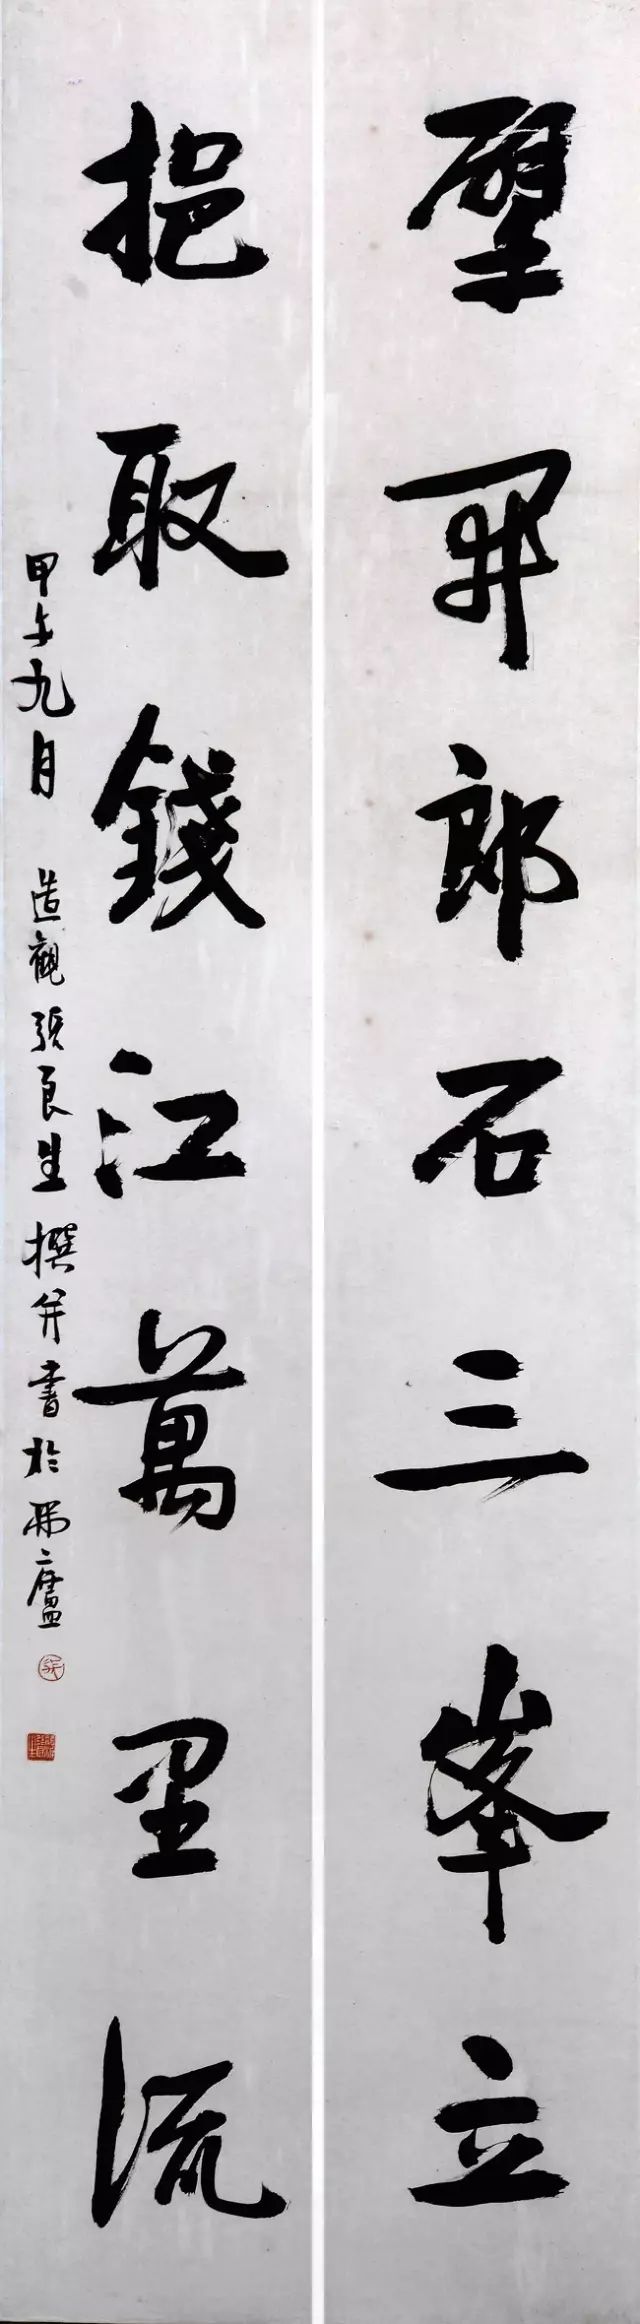 擘開郎石三峯立
挹取錢江萬里流
甲午九月 造觀張良生撰并書於廬